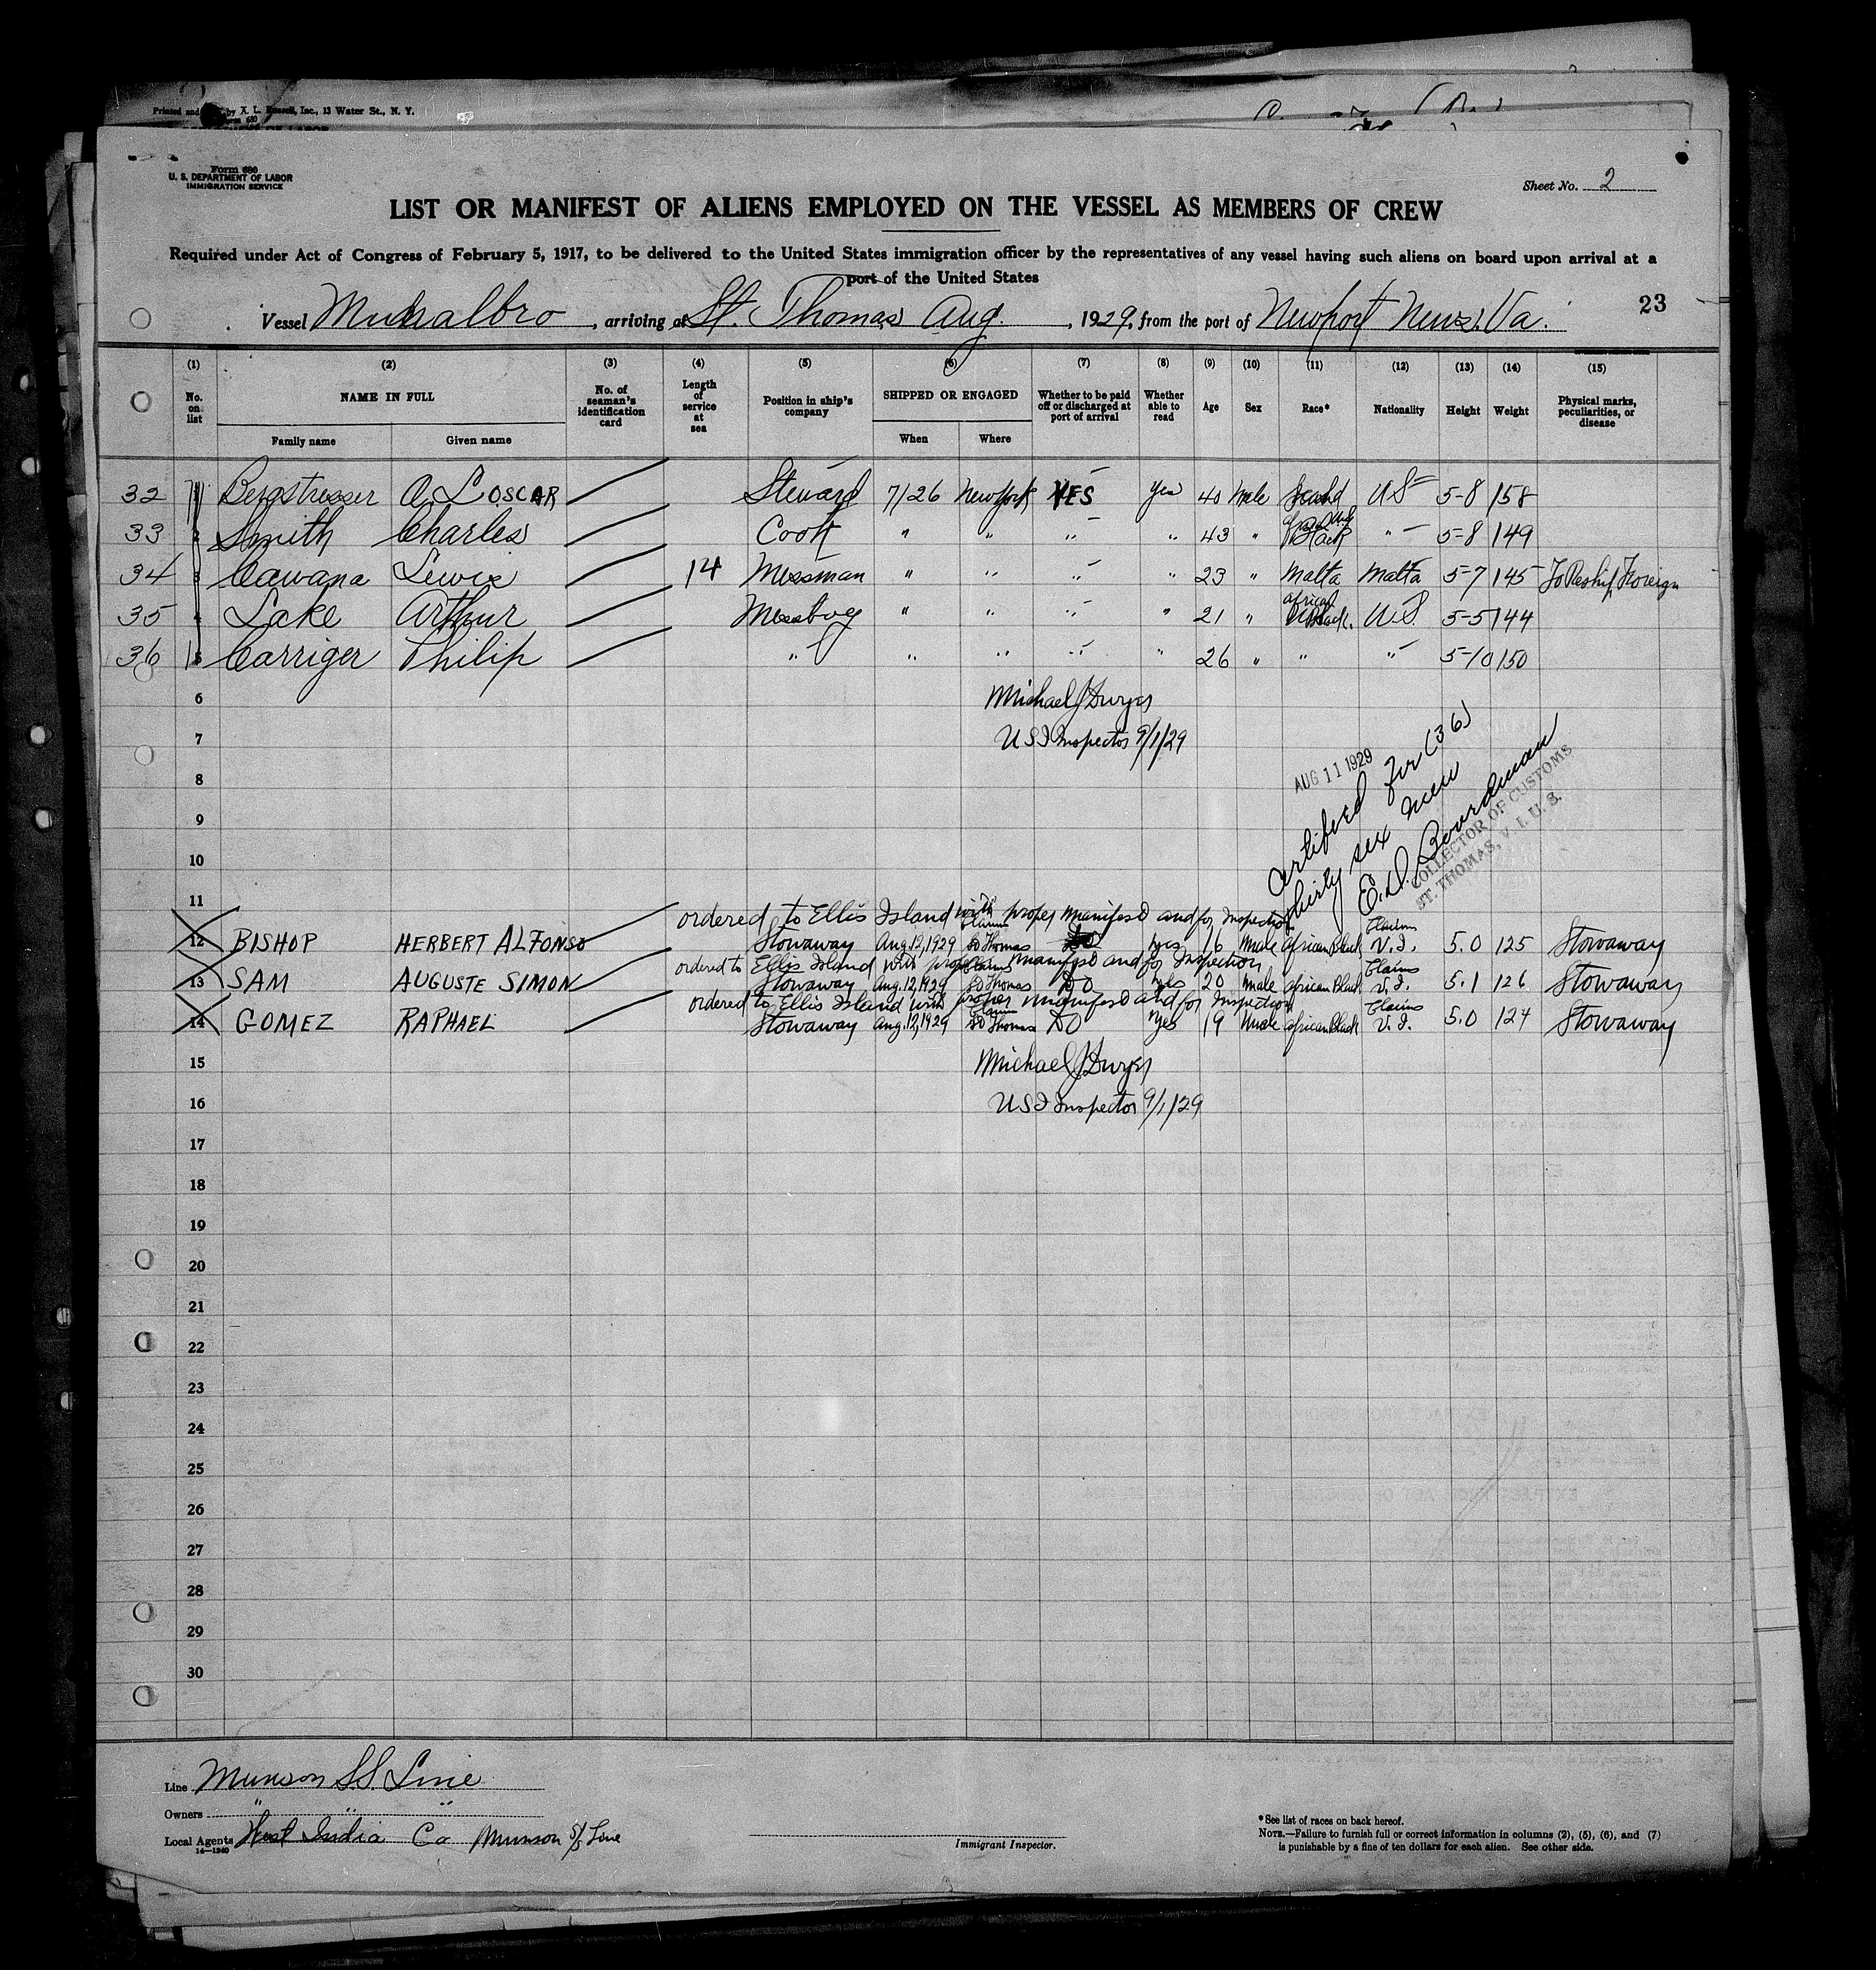 Printed and by X. L. Inc., 13 Water St., N. Y.
Form 680
U. S. DEPARTMENT OF LABOR
IMMIGRATION SERVICE
Sheet No. 2
LIST OR MANIFEST OF ALIENS EMPLOYED ON THE VESSEL AS MEMBERS OF CREW
Required under Act of Congress of February 5, 1917, to be delivered to the United States immigration officer by the representatives of any vessel having such aliens on board upon arrival at a
port of the United States
23
Vessel Munalbro, arriving at St. Thomas Aug., 1929, from the port of Newport News, Va.
(1) (2) (3) (4) (5) (6) (7) (8) (9) (10) (11) (12) (13) (14) (15)
No. on list NAME IN FULL Family name Given name No. of seaman's identification card Length of service at sea Position in ship's company SHIPPED OR ENGAGED When Where Whether to be paid off or discharged at port of arrival Whether able to read Age Sex Race* Nationality Height Weight Physical marks, peculiarities, or disease
32 1 Bergstresser A L OSCAR Steward 7/26 New York YES yes 40 Male US 5-8 158
33 2 Smith Charles Cook " " " " 43 " Black " 5-8 149
34 3 Cawana Lewis 14 Messman " " " " 23 " Malta Malta 5-7 145 To Reship Foreign
35 4 Lake Arthur Messboy " " " " 21 " African Black. U.S. 5-5 144
36 5 Carriger Philip " " " " " 26 " " " 5-10 150
6 Michael J Dwyer
7 U S I Inspector 9/1/29
AUG 11 1929
Certified for (36)
thirty six men
E. D. Boardman
COLLECTOR OF CUSTOMS
ST. THOMAS, V. I. U. S.
8
9
10
11
ordered to Ellis Island with proper manifest and for Inspection
12 BISHOP HERBERT ALFONSO Stowaway Aug. 12, 1929 Claims St Thomas DO yes 16 Male African Black Claims V. I. 5.0 125 Stowaway
ordered to Ellis Island with proper manifest and for Inspection
13 SAM AUGUSTE SIMON Stowaway Aug. 12, 1929 Claims St Thomas DO yes 20 Male African Black Claims V. I. 5.1 126 Stowaway
ordered to Ellis Island with proper manifest and for Inspection
14 GOMEZ RAPHAEL Stowaway Aug. 12, 1929 Claims St Thomas DO yes 19 Male African Black Claims V. I. 5.0 124 Stowaway
15 Michael J Dwyer
16 U S I Inspector 9/1/29
17
18
19
20
21
22
23
24
25
26
27
28
29
30
Line Munson S.S. Line
Owners " " "
Local Agents West India Co Munson S/S Line
14—1240
Immigrant Inspector.
*See list of races on back hereof.
NOTE.—Failure to furnish full or correct information in columns (2), (5), (6), and (7)
is punishable by a fine of ten dollars for each alien. See other side.